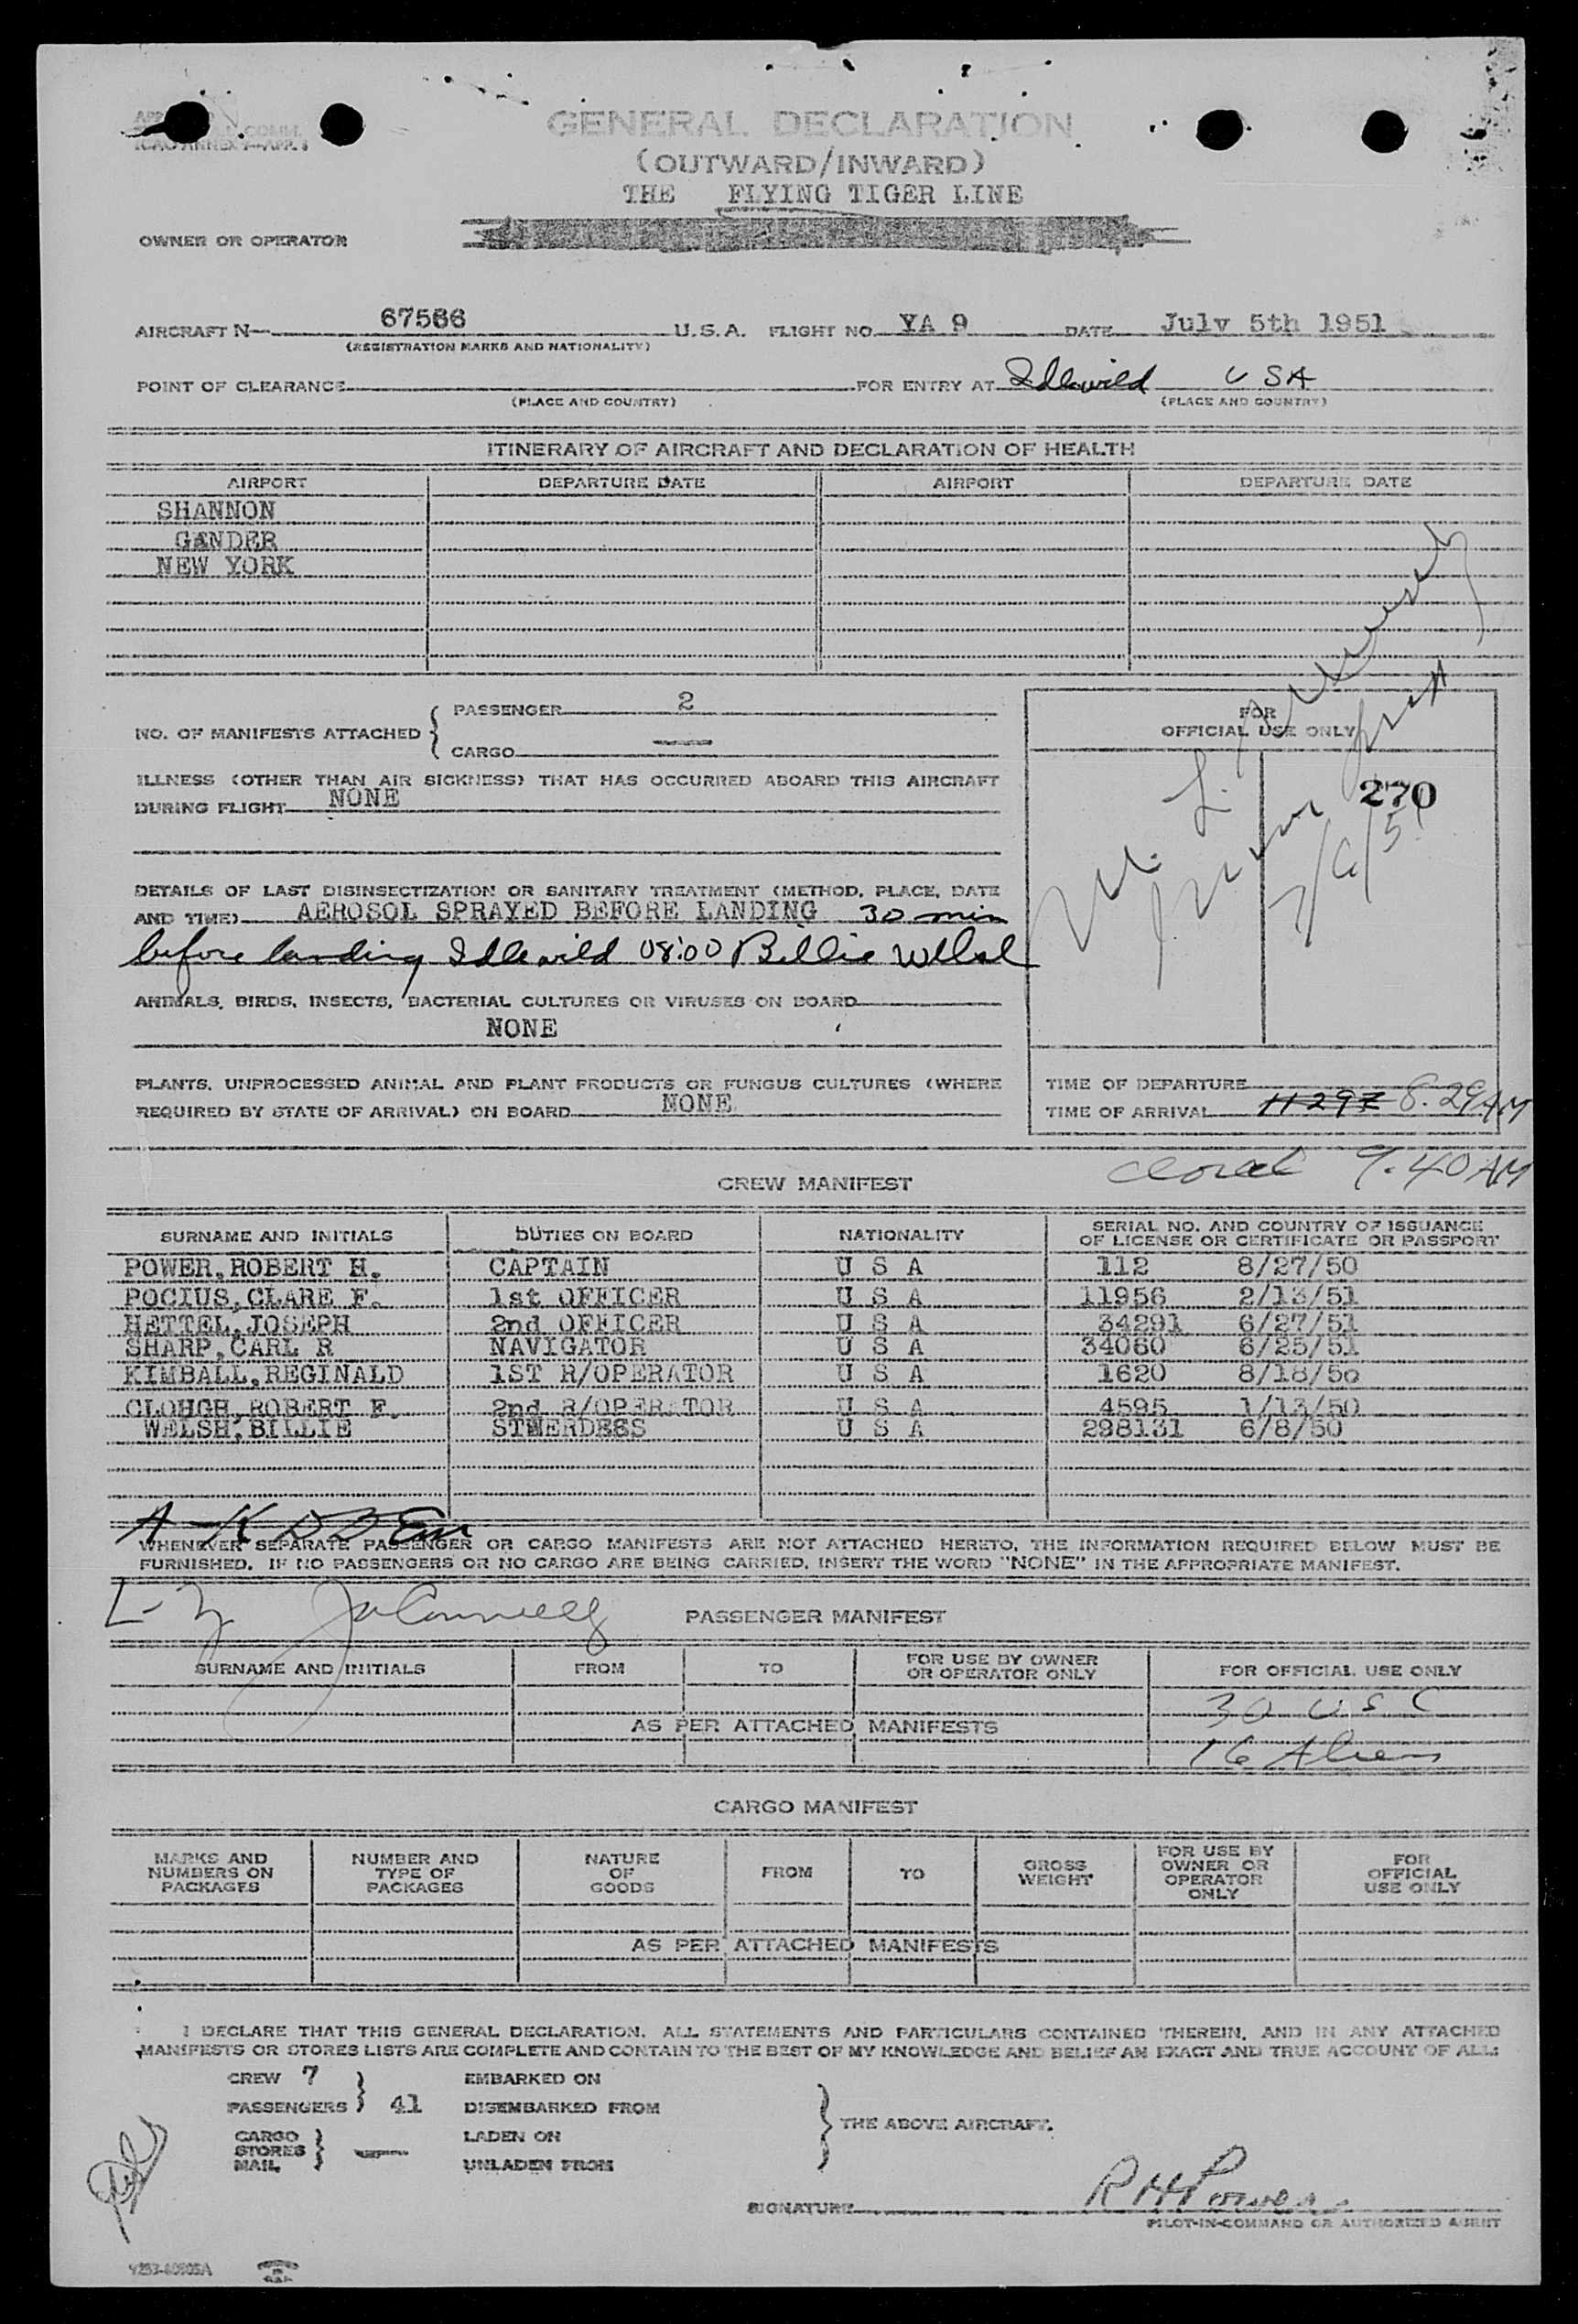 GENERAL DECLARATION
(OUTWARD/INWARD)
THE FLYING TIGER LINE
OWNER OR OPERATOR
AIRCRAFT N- 67566 U.S.A. FLIGHT NO. YA 9 DATE July 5th 1951
(REGISTRATION MARKS AND NATIONALITY)
POINT OF CLEARANCE FOR ENTRY AT Idlewild USA
(PLACE AND COUNTRY) (PLACE AND COUNTRY)
ITINERARY OF AIRCRAFT AND DECLARATION OF HEALTH
AIRPORT DEPARTURE DATE AIRPORT DEPARTURE DATE
SHANNON
GANDER
NEW YORK
NO. OF MANIFESTS ATTACHED { PASSENGER 2
CARGO —
FOR
OFFICIAL USE ONLY
270
7/6/51
ILLNESS (OTHER THAN AIR SICKNESS) THAT HAS OCCURRED ABOARD THIS AIRCRAFT
DURING FLIGHT NONE
DETAILS OF LAST DISINSECTIZATION OR SANITARY TREATMENT (METHOD, PLACE, DATE
AND TIME) AEROSOL SPRAYED BEFORE LANDING 30 min
before landing Idlewild 08:00 Billie Welsh
ANIMALS, BIRDS, INSECTS, BACTERIAL CULTURES OR VIRUSES ON BOARD
NONE
PLANTS, UNPROCESSED ANIMAL AND PLANT PRODUCTS OR FUNGUS CULTURES (WHERE
REQUIRED BY STATE OF ARRIVAL) ON BOARD NONE
TIME OF DEPARTURE
TIME OF ARRIVAL 1129Z 8:29AM
9:40 AM
CREW MANIFEST
SURNAME AND INITIALS DUTIES ON BOARD NATIONALITY SERIAL NO. AND COUNTRY OF ISSUANCE
OF LICENSE OR CERTIFICATE OR PASSPORT
POWER, ROBERT H. CAPTAIN U S A 112 8/27/50
POCIUS, CLARE F. 1st OFFICER U S A 11956 2/13/51
HETTEL, JOSEPH 2nd OFFICER U S A 34291 6/27/51
SHARP, CARL R NAVIGATOR U S A 34060 6/25/51
KIMBALL, REGINALD 1ST R/OPERATOR U S A 1620 8/18/50
CLOUGH, ROBERT F. 2nd R/OPERATOR U S A 4595 1/13/50
WELSH, BILLIE STWERDESS U S A 298131 6/8/50
WHENEVER SEPARATE PASSENGER OR CARGO MANIFESTS ARE NOT ATTACHED HERETO, THE INFORMATION REQUIRED BELOW MUST BE
FURNISHED. IF NO PASSENGERS OR NO CARGO ARE BEING CARRIED, INSERT THE WORD "NONE" IN THE APPROPRIATE MANIFEST.
PASSENGER MANIFEST
SURNAME AND INITIALS FROM TO FOR USE BY OWNER
OR OPERATOR ONLY FOR OFFICIAL USE ONLY
30 U S C
AS PER ATTACHED MANIFESTS
16 Aliens
CARGO MANIFEST
MARKS AND
NUMBERS ON
PACKAGES
NUMBER AND
TYPE OF
PACKAGES
NATURE
OF
GOODS
FROM
TO
GROSS
WEIGHT
FOR USE BY
OWNER OR
OPERATOR
ONLY
FOR
OFFICIAL
USE ONLY
AS PER ATTACHED MANIFESTS
I DECLARE THAT THIS GENERAL DECLARATION, ALL STATEMENTS AND PARTICULARS CONTAINED THEREIN, AND IN ANY ATTACHED
MANIFESTS OR STORES LISTS ARE COMPLETE AND CONTAIN TO THE BEST OF MY KNOWLEDGE AND BELIEF AN EXACT AND TRUE ACCOUNT OF ALL:
CREW 7 EMBARKED ON
PASSENGERS } 41 DISEMBARKED FROM
THE ABOVE AIRCRAFT.
CARGO LADEN ON
STORES } —
MAIL UNLADEN FROM
SIGNATURE RH Power
PILOT-IN-COMMAND OR AUTHORIZED AGENT